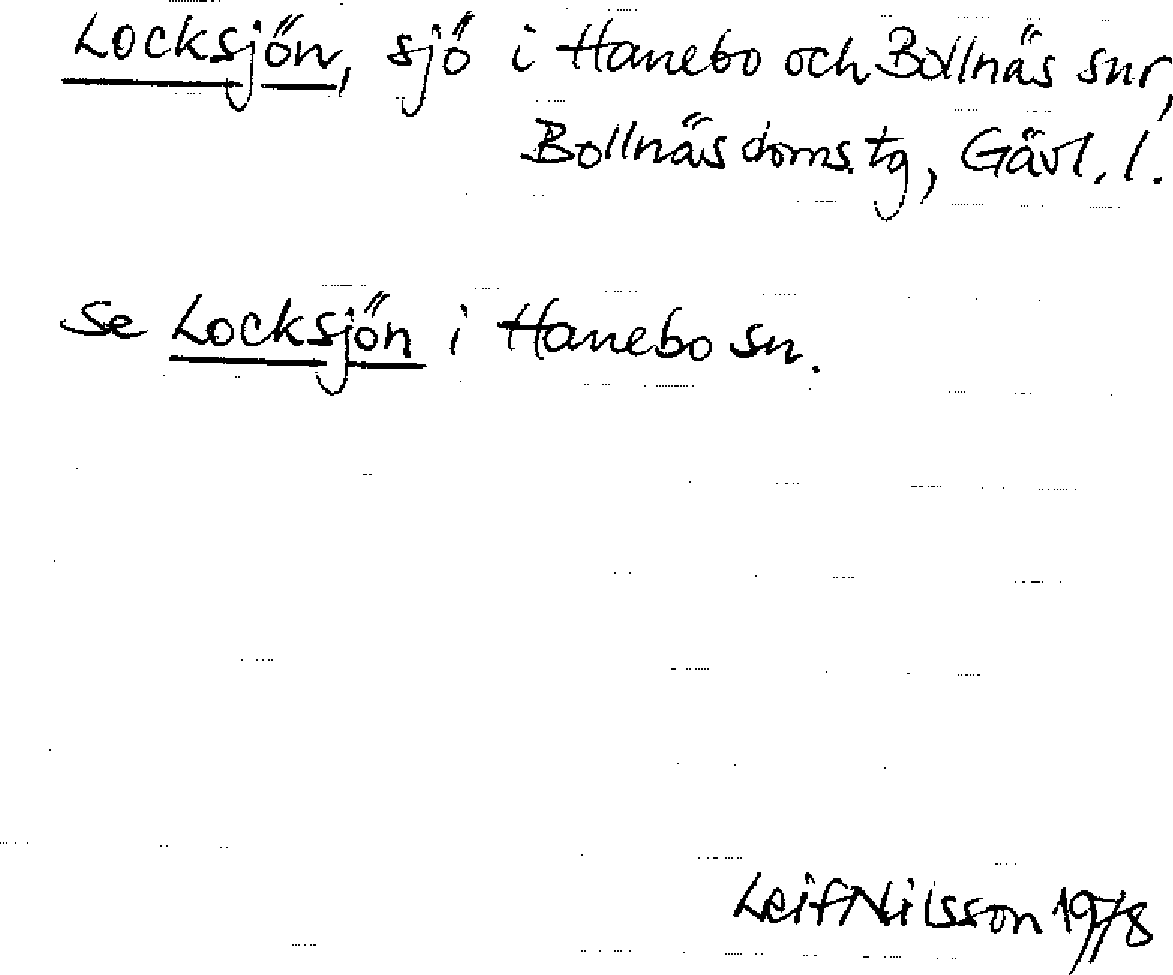 Locksjön, sjö i Hanebo och Bollnäs snr,
Bollnäs doms.tg, Gävl. l.
se Locksjön i Hanebo sn.
Leif Nilsson 1978